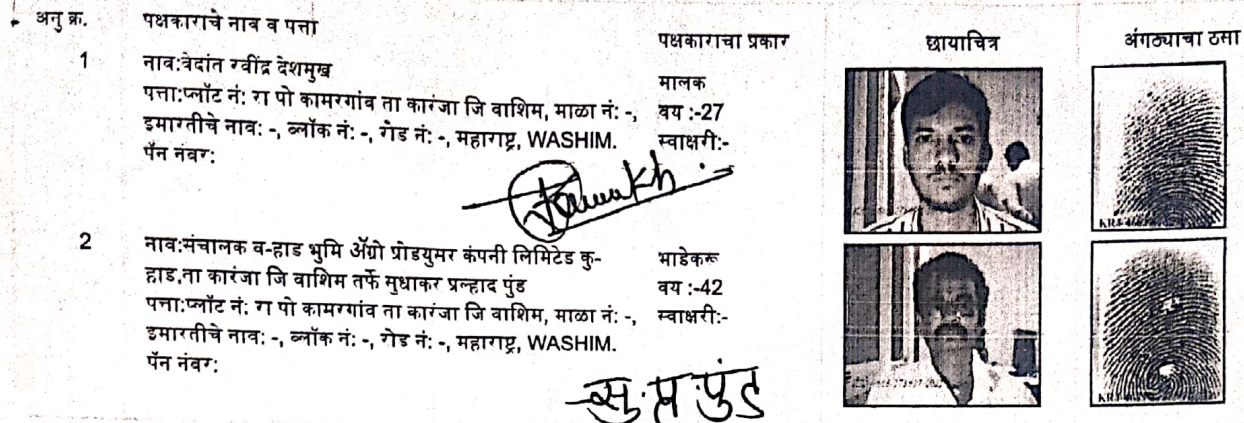 अनु क्र. पक्षकाराचे नाव व पत्ता पक्षकाराचा प्रकार छायाचित्र अंगठ्याचा ठसा
1 नाव:वेदांत रवींद्र देशमुख मालक
पत्ता:प्लॉट नं: रा पो कामरगांव ता कारंजा जि वाशिम, माळा नं: -, वय :-27
इमारतीचे नाव: -, ब्लॉक नं: -, रोड नं: -, महाराष्ट्र, WASHIM. स्वाक्षरी:-
पॅन नंबर:
2 नाव:संचालक व-हाड भुमि अ‍ॅग्रो प्रोडयुसर कंपनी लिमिटेड कु- भाडेकरू
हाड,ता कारंजा जि वाशिम तर्फे सुधाकर प्रल्हाद पुंड वय :-42
पत्ता:प्लॉट नं: रा पो कामरगांव ता कारंजा जि वाशिम, माळा नं: -, स्वाक्षरी:-
इमारतीचे नाव: -, ब्लॉक नं: -, रोड नं: -, महाराष्ट्र, WASHIM.
पॅन नंबर:
सु. प्र. पुंड